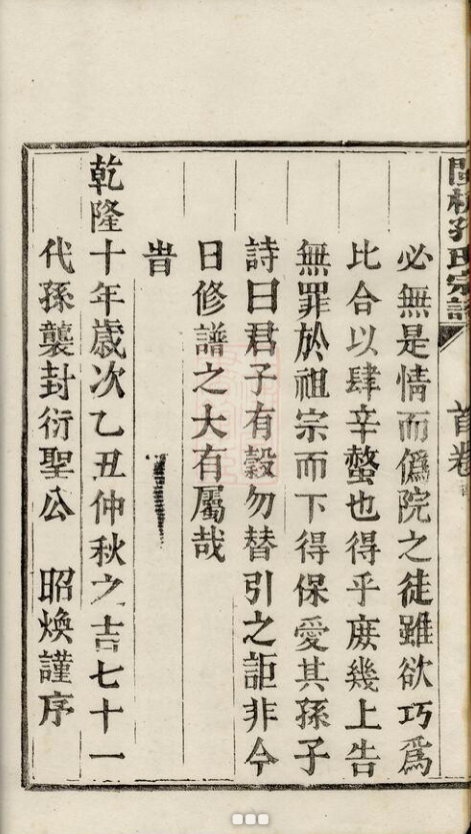 孔氏宗譜
首卷
必無是情而僞院之徒雖欲巧爲
比合以肆辛螫也得乎庻幾上告
無罪於祖宗而下得保愛其孫子
詩曰君子有穀勿替引之詎非今
日修譜之大有屬哉
旹
乾隆十年歲次乙丑仲秋之吉七十一
代孫襲封衍聖公 昭煥謹序